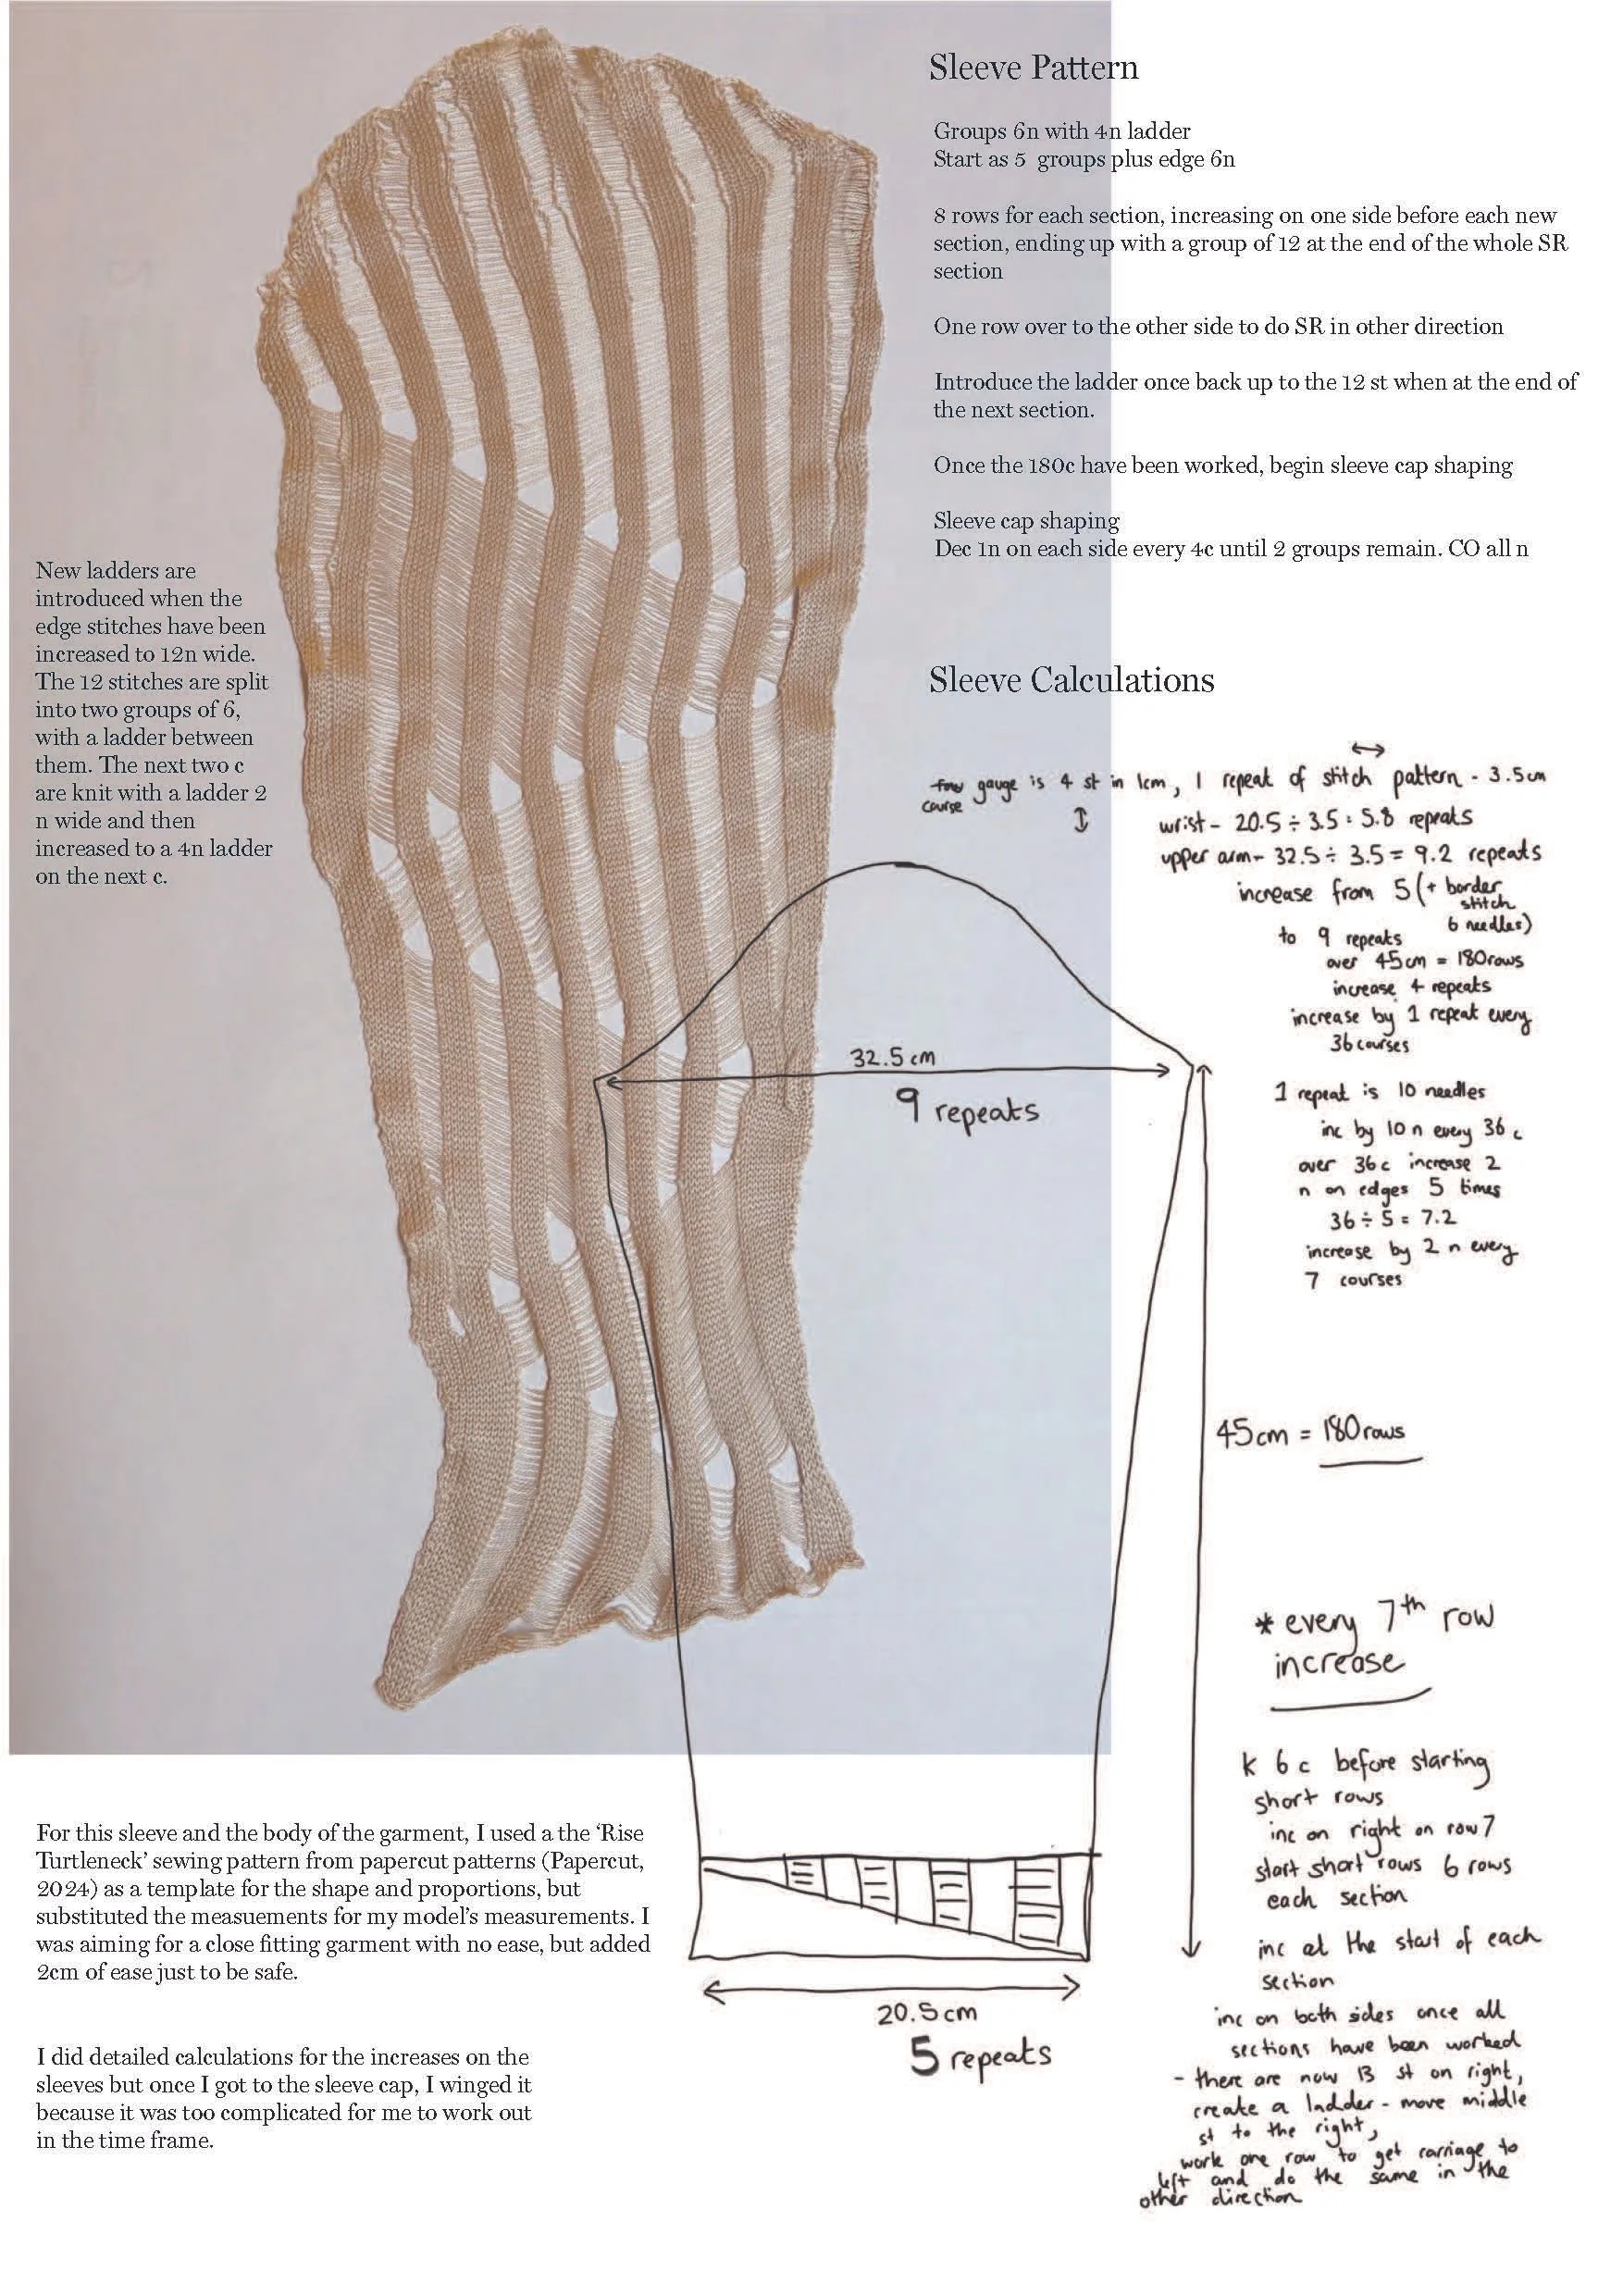 Sleeve Pattern
Groups 6n with 4n ladder
Start as 5 groups plus edge 6n
8 rows for each section, increasing on one side before each new
section, ending up with a group of 12 at the end of the whole SR
section
One row over to the other side to do SR in other direction
Introduce the ladder once back up to the 12 st when at the end of
the next section.
Once the 180c have been worked, begin sleeve cap shaping
Sleeve cap shaping
Dec 1n on each side every 4c until 2 groups remain. CO all n
New ladders are
introduced when the
edge stitches have been
increased to 12n wide.
The 12 stitches are split
into two groups of 6,
with a ladder between
them. The next two c
are knit with a ladder 2
n wide and then
increased to a 4n ladder
on the next c.
Sleeve Calculations
gauge is 4 st in 1cm, 1 repeat of stitch pattern - 3.5cm
course
wrist - 20.5 ÷ 3.5 = 5.8 repeats
upper arm - 32.5 ÷ 3.5 = 9.2 repeats
increase from 5 (+ border
stitch
6 needles)
to 9 repeats
over 45cm = 180rows
increase 4 repeats
increase by 1 repeat every
36 courses
32.5 cm
9 repeats
1 repeat is 10 needles
inc by 10 n every 36 c
over 36c increase 2
n on edges 5 times
36 ÷ 5 = 7.2
increase by 2 n every
7 courses
45cm = 180rows
* every 7th row
increase
k 6 c before starting
short rows
inc on right on row 7
start short rows 6 rows
each section
inc at the start of each
section
inc on both sides once all
sections have been worked
- there are now 13 st on right,
create a ladder - move middle
st to the right,
work one row to get carriage to
left and do the same in the
other direction
20.5cm
5 repeats
For this sleeve and the body of the garment, I used a the ‘Rise
Turtleneck’ sewing pattern from papercut patterns (Papercut,
2024) as a template for the shape and proportions, but
substituted the measuements for my model’s measurements. I
was aiming for a close fitting garment with no ease, but added
2cm of ease just to be safe.
I did detailed calculations for the increases on the
sleeves but once I got to the sleeve cap, I winged it
because it was too complicated for me to work out
in the time frame.